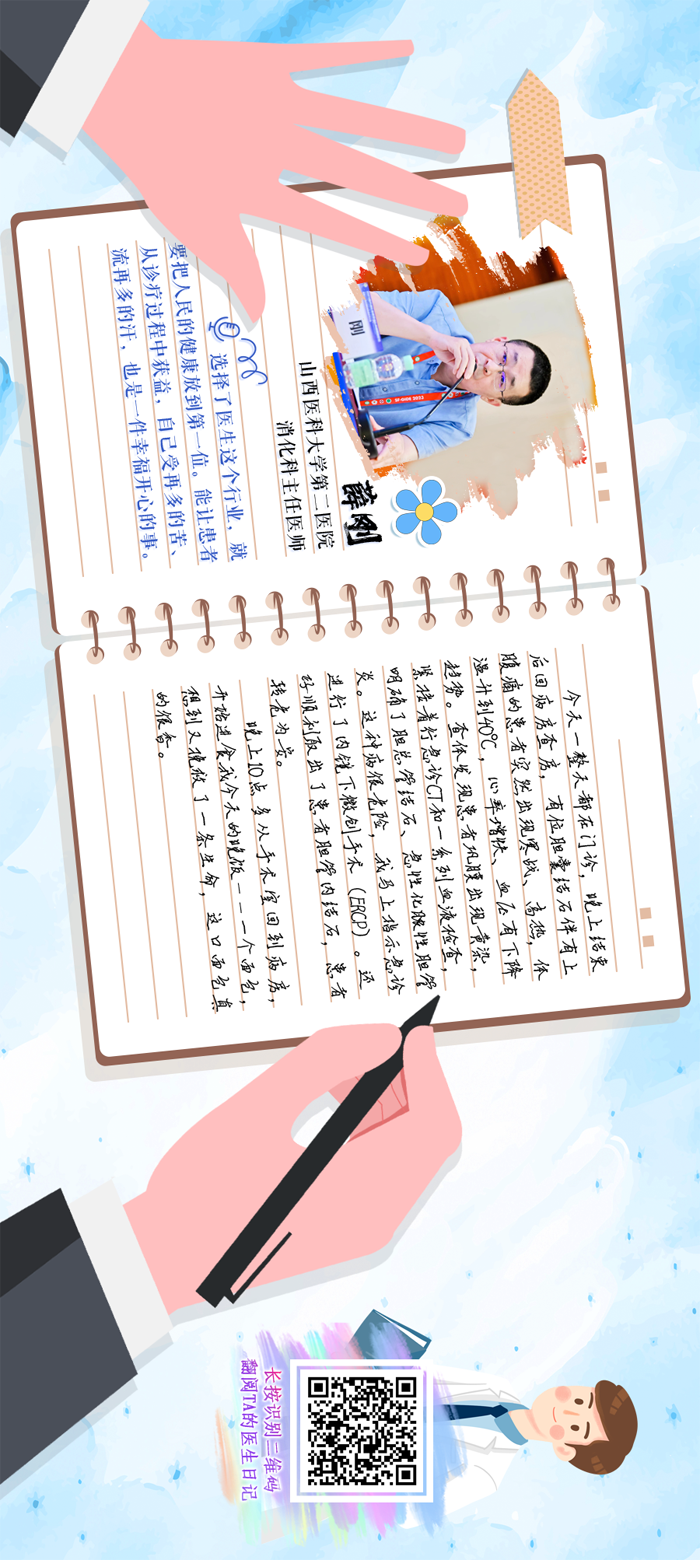 刚
SF-DDW 2023
薛刚
山西医科大学第二医院
消化科主任医师
选择了医生这个行业，就
要把人民的健康放到第一位。能让患者
从诊疗过程中获益，自己受再多的苦、
流再多的汗，也是一件幸福开心的事。
今天一整天都在门诊，晚上结束
后回病房查房，有位胆囊结石伴有上
腹痛的患者突然出现寒战、高热，体
温升到40℃，心率增快、血压有下降
趋势。查体发现患者巩膜出现黄染，
紧接着行急诊CT和一系列血液检查，
明确了胆总管结石、急性化脓性胆管
炎。这种病很危险，我马上指示急诊
进行了内镜下微创手术（ERCP）。还
好顺利取出了患者胆管内结石，患者
转危为安。
晚上10点多从手术室回到病房，
开始进食我今天的晚饭——一个面包，
想到又挽救了一条生命，这口面包真
的很香。
长按识别二维码
翻阅TA的医生日记